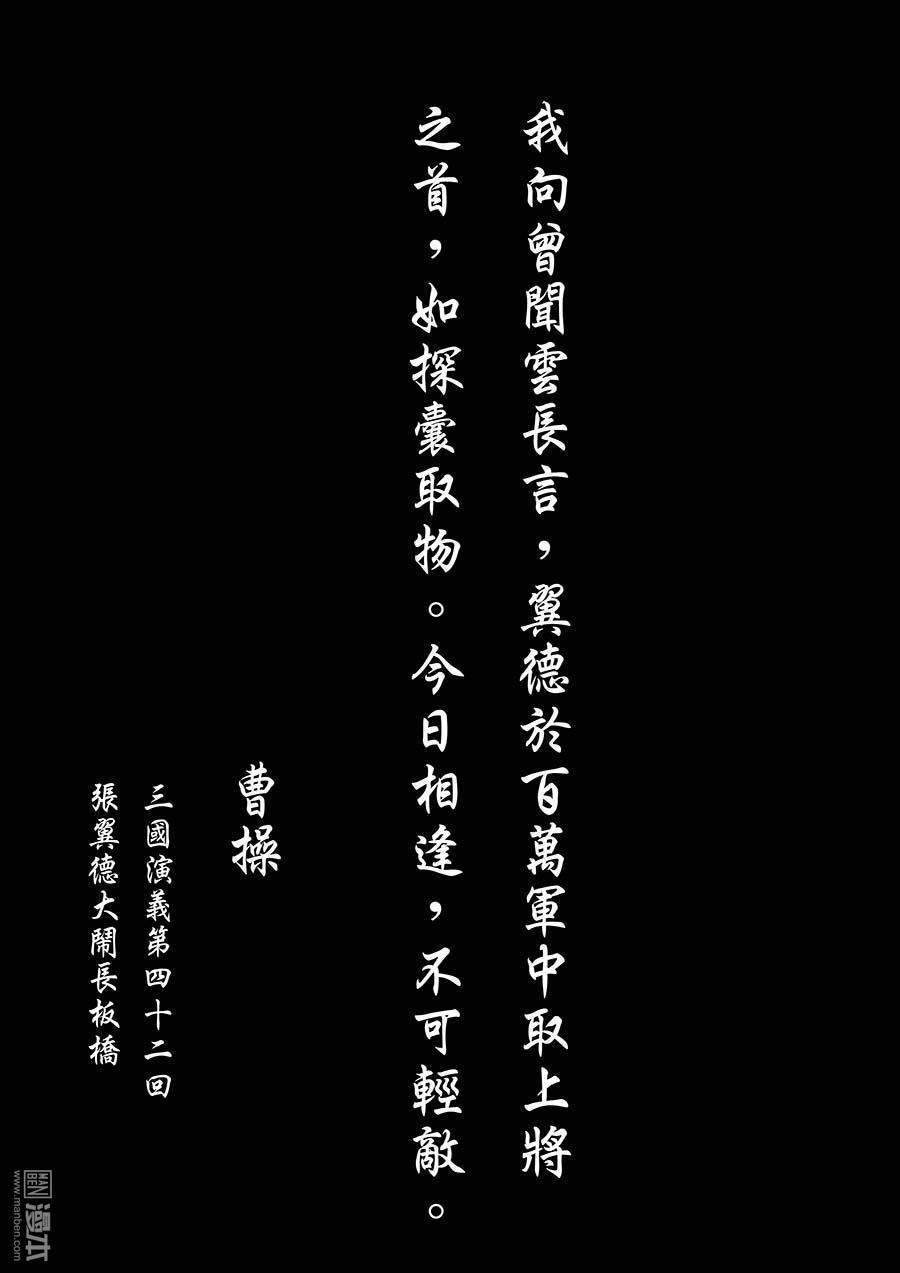 我向曾聞雲長言，翼德於百萬軍中取上將
之首，如探囊取物。今日相逢，不可輕敵。
曹操
三國演義第四十二回
張翼德大鬧長板橋
MANBEN 漫本
www.manben.com